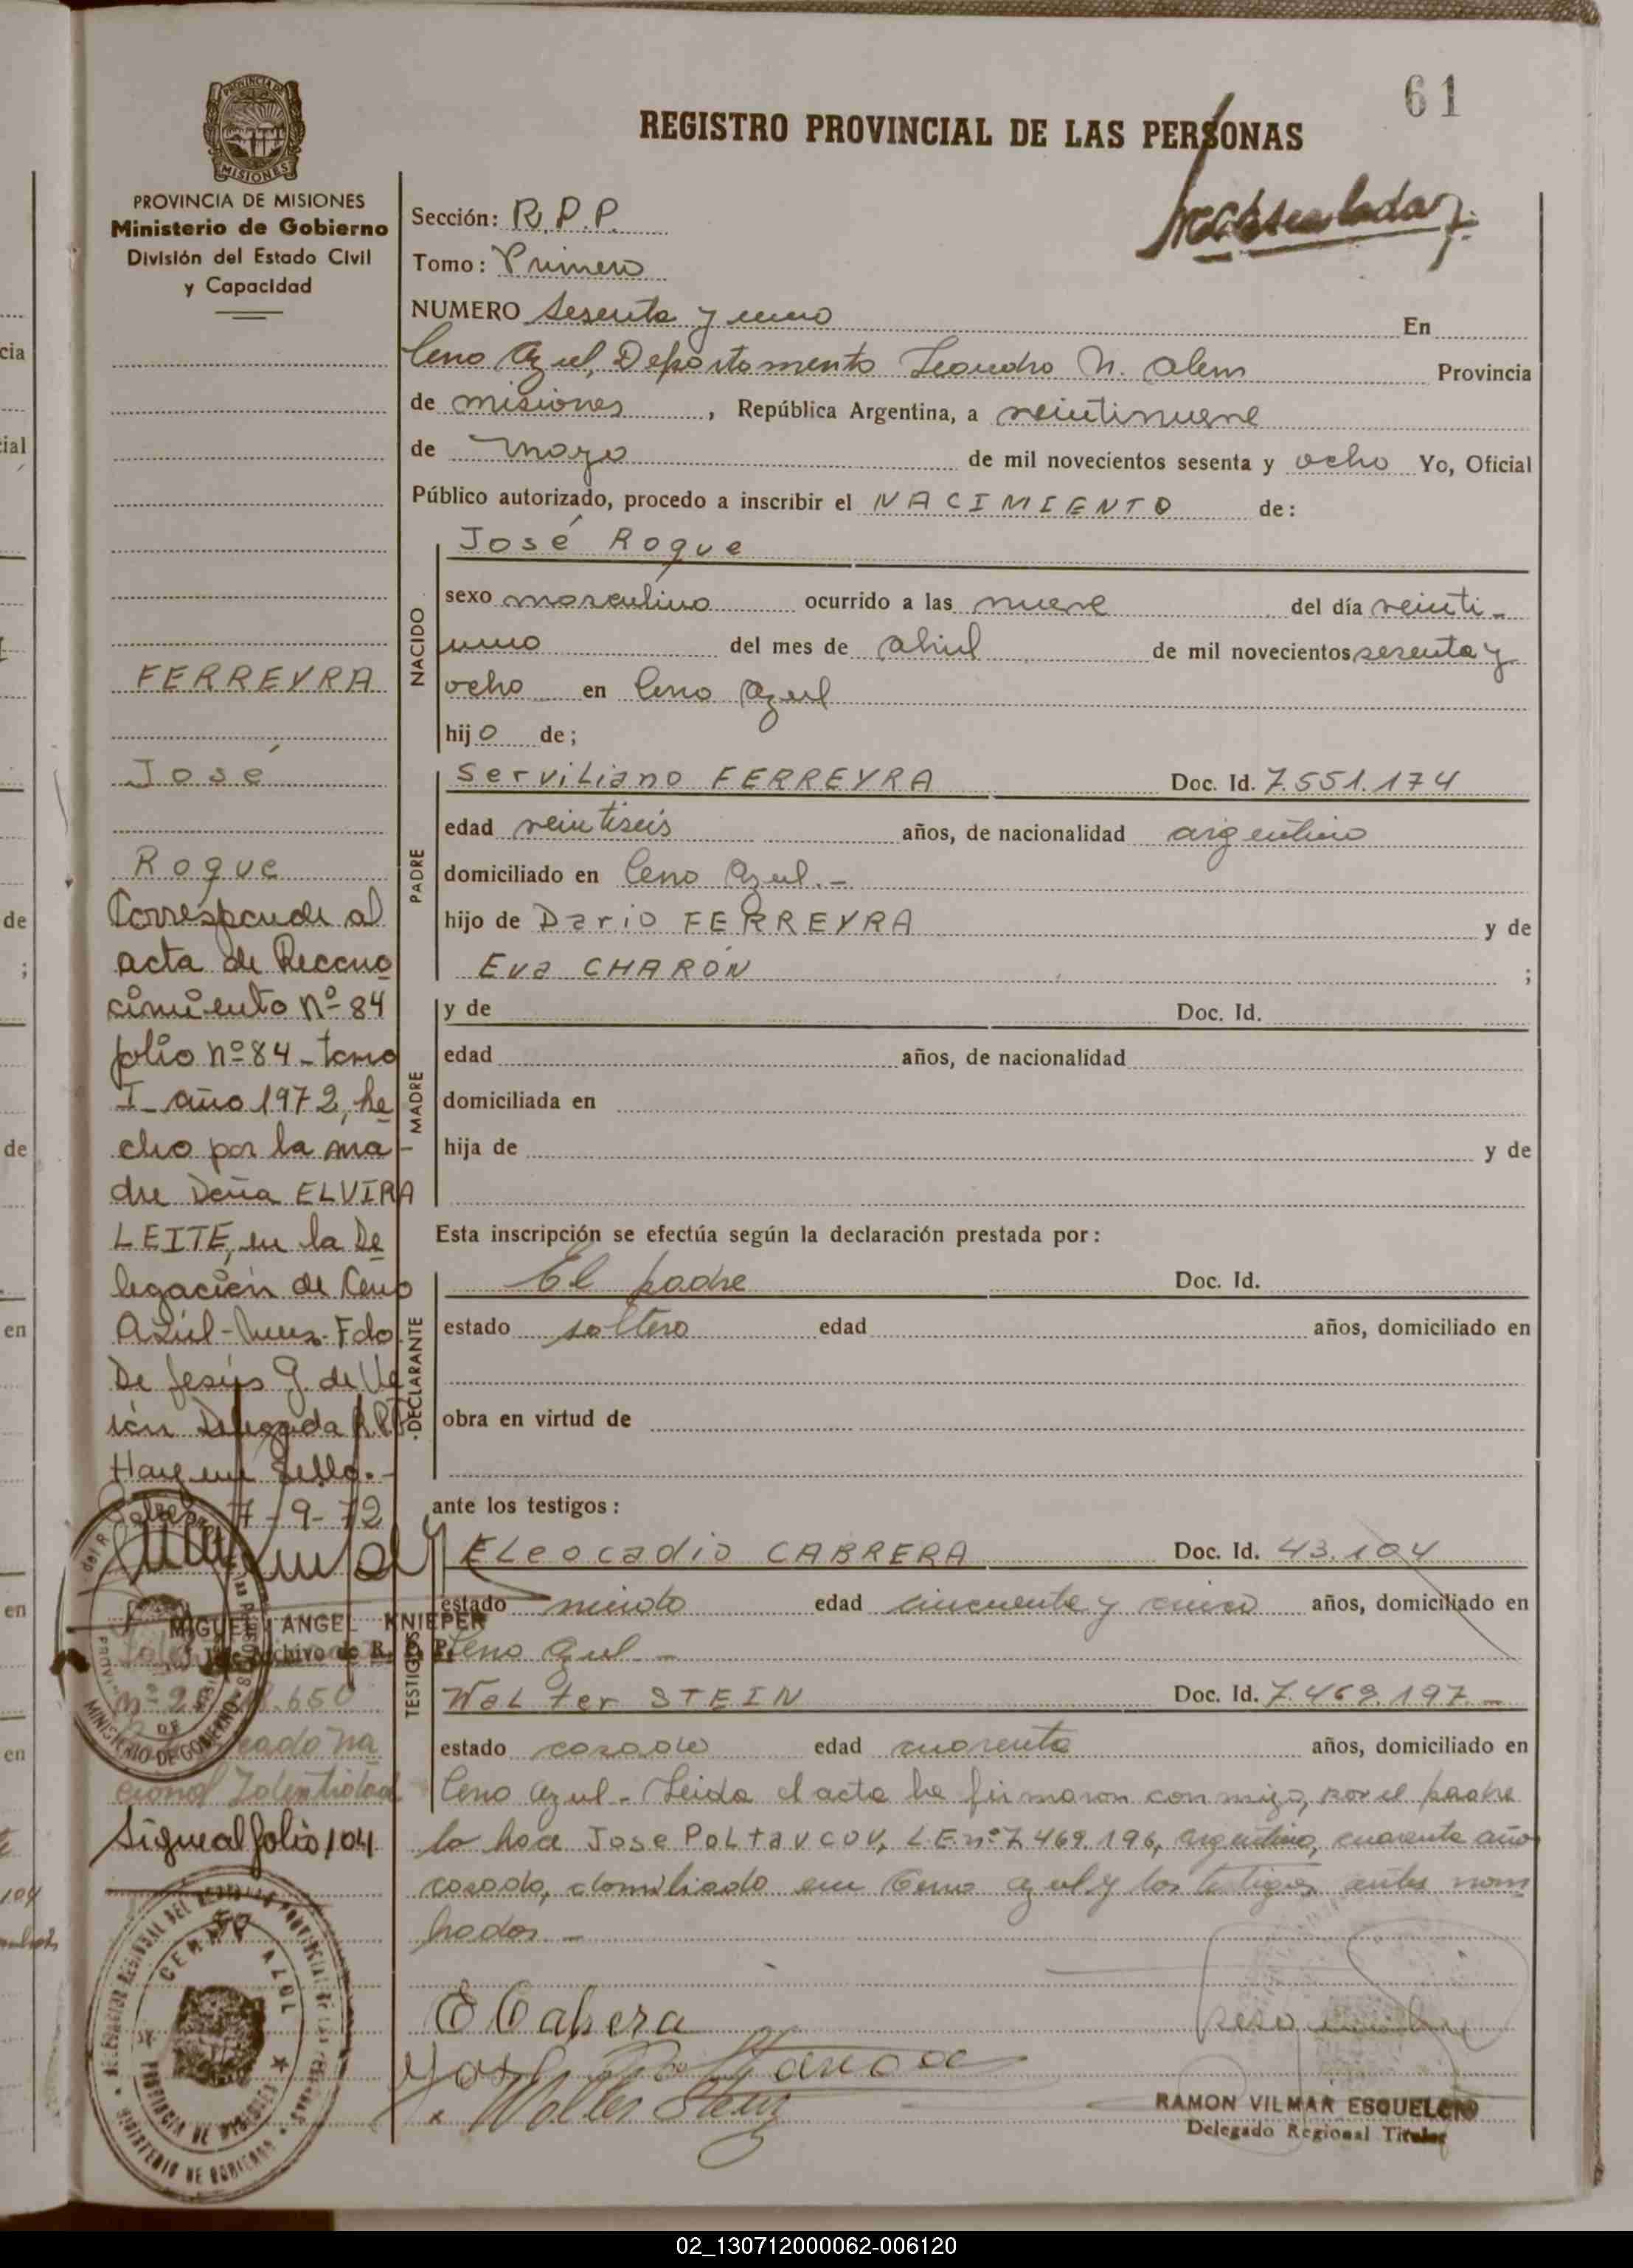 61
REGISTRO PROVINCIAL DE LAS PERSONAS
PROVINCIA DE MISIONES
Ministerio de Gobierno
División del Estado Civil
y Capacidad
Sección: R.P.P.
Tomo: Primero
NUMERO sesenta y uno En
Cerro Azul, Departamento Leandro N. Alem Provincia
de misiones, República Argentina, a veintinueve
de mayo de mil novecientos sesenta y ocho Yo, Oficial
Público autorizado, procedo a inscribir el NACIMIENTO de:
NACIDO
José Roque
sexo masculino ocurrido a las nueve del día veinti-
uno del mes de abril de mil novecientos sesenta y
ocho en Cerro Azul
hijo de;
PADRE
Serviliano FERREYRA Doc. Id. 7.551.174
edad veintiseis años, de nacionalidad argentino
domiciliado en Cerro Azul.-
hijo de Dario FERREYRA y de
Eva CHARÓN ;
MADRE
y de Doc. Id.
edad años, de nacionalidad
domiciliada en
hija de y de
Esta inscripción se efectúa según la declaración prestada por:
DECLARANTE
El padre Doc. Id.
estado soltero edad años, domiciliado en
obra en virtud de
ante los testigos:
TESTIGOS
ELeocadio CABRERA Doc. Id. 43.104
estado viudo edad cincuenta y cinco años, domiciliado en
Cerro Azul -
WaLter STEIN Doc. Id. 7.469.197.-
estado casado edad cuarenta años, domiciliado en
Cerro Azul - Leida el acta la firmaron conmigo, por el padre
lo hace Jose PoLtavcov, L.E. nº 7.469.196, argentino, cuarenta años
casado, domiliado en Cerro Azul y los testigos antes nom
brados.-
E Cabrera
Walter Stein
RAMON VILMAR ESQUELON
Delegado Regional Titular
FERREYRA
José
Roque
Corresponde al
acta de Recono
cimiento Nº 84
folio nº 84 - tomo
I - año 1972, he
cho por la ma-
dre Doña ELVIRA
LEITE, en la De
legación de Cerro
Azúl - Mnes. Fdo.
De Jesús G. de Ve
ión Delegada RPP
Hay un Sello.-
7-9-72
MIGUEL ANGEL KNIEPER
Jefe Archivo de R. P. P.
MINISTERIO DE GOBIERNO
cional Identidad
Sigue al folio 104
CERRO AZUL
PROVINCIA DE MISIONES
MINISTERIO DE GOBIERNO
02_130712000062-006120